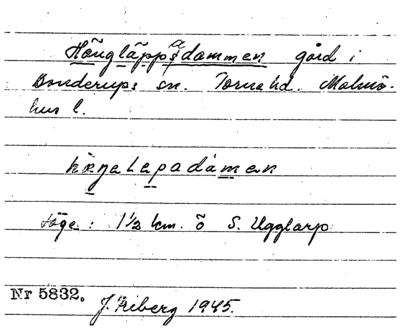 Höngläppadammen gård i
Bonderups sn. Torna hd. Malmö-
hus l.
Läge: 1½ km. ö S. Ugglarp
Nr 5832. J. Friberg 1945.